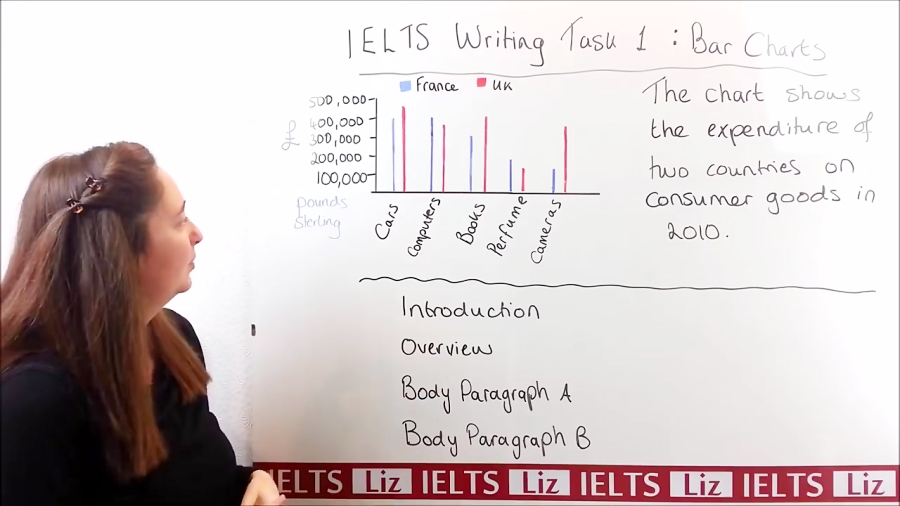 IELTS Writing Task 1 : Bar Charts
France UK
500,000
400,000
£
300,000
200,000
100,000
pounds
Sterling
Cars
Computers
Books
Perfume
Cameras
The chart shows
the expenditure of
two countries on
consumer goods in
2010.
Introduction
Overview
Body Paragraph A
Body Paragraph B
IELTS Liz IELTS Liz IELTS Liz IELTS Liz